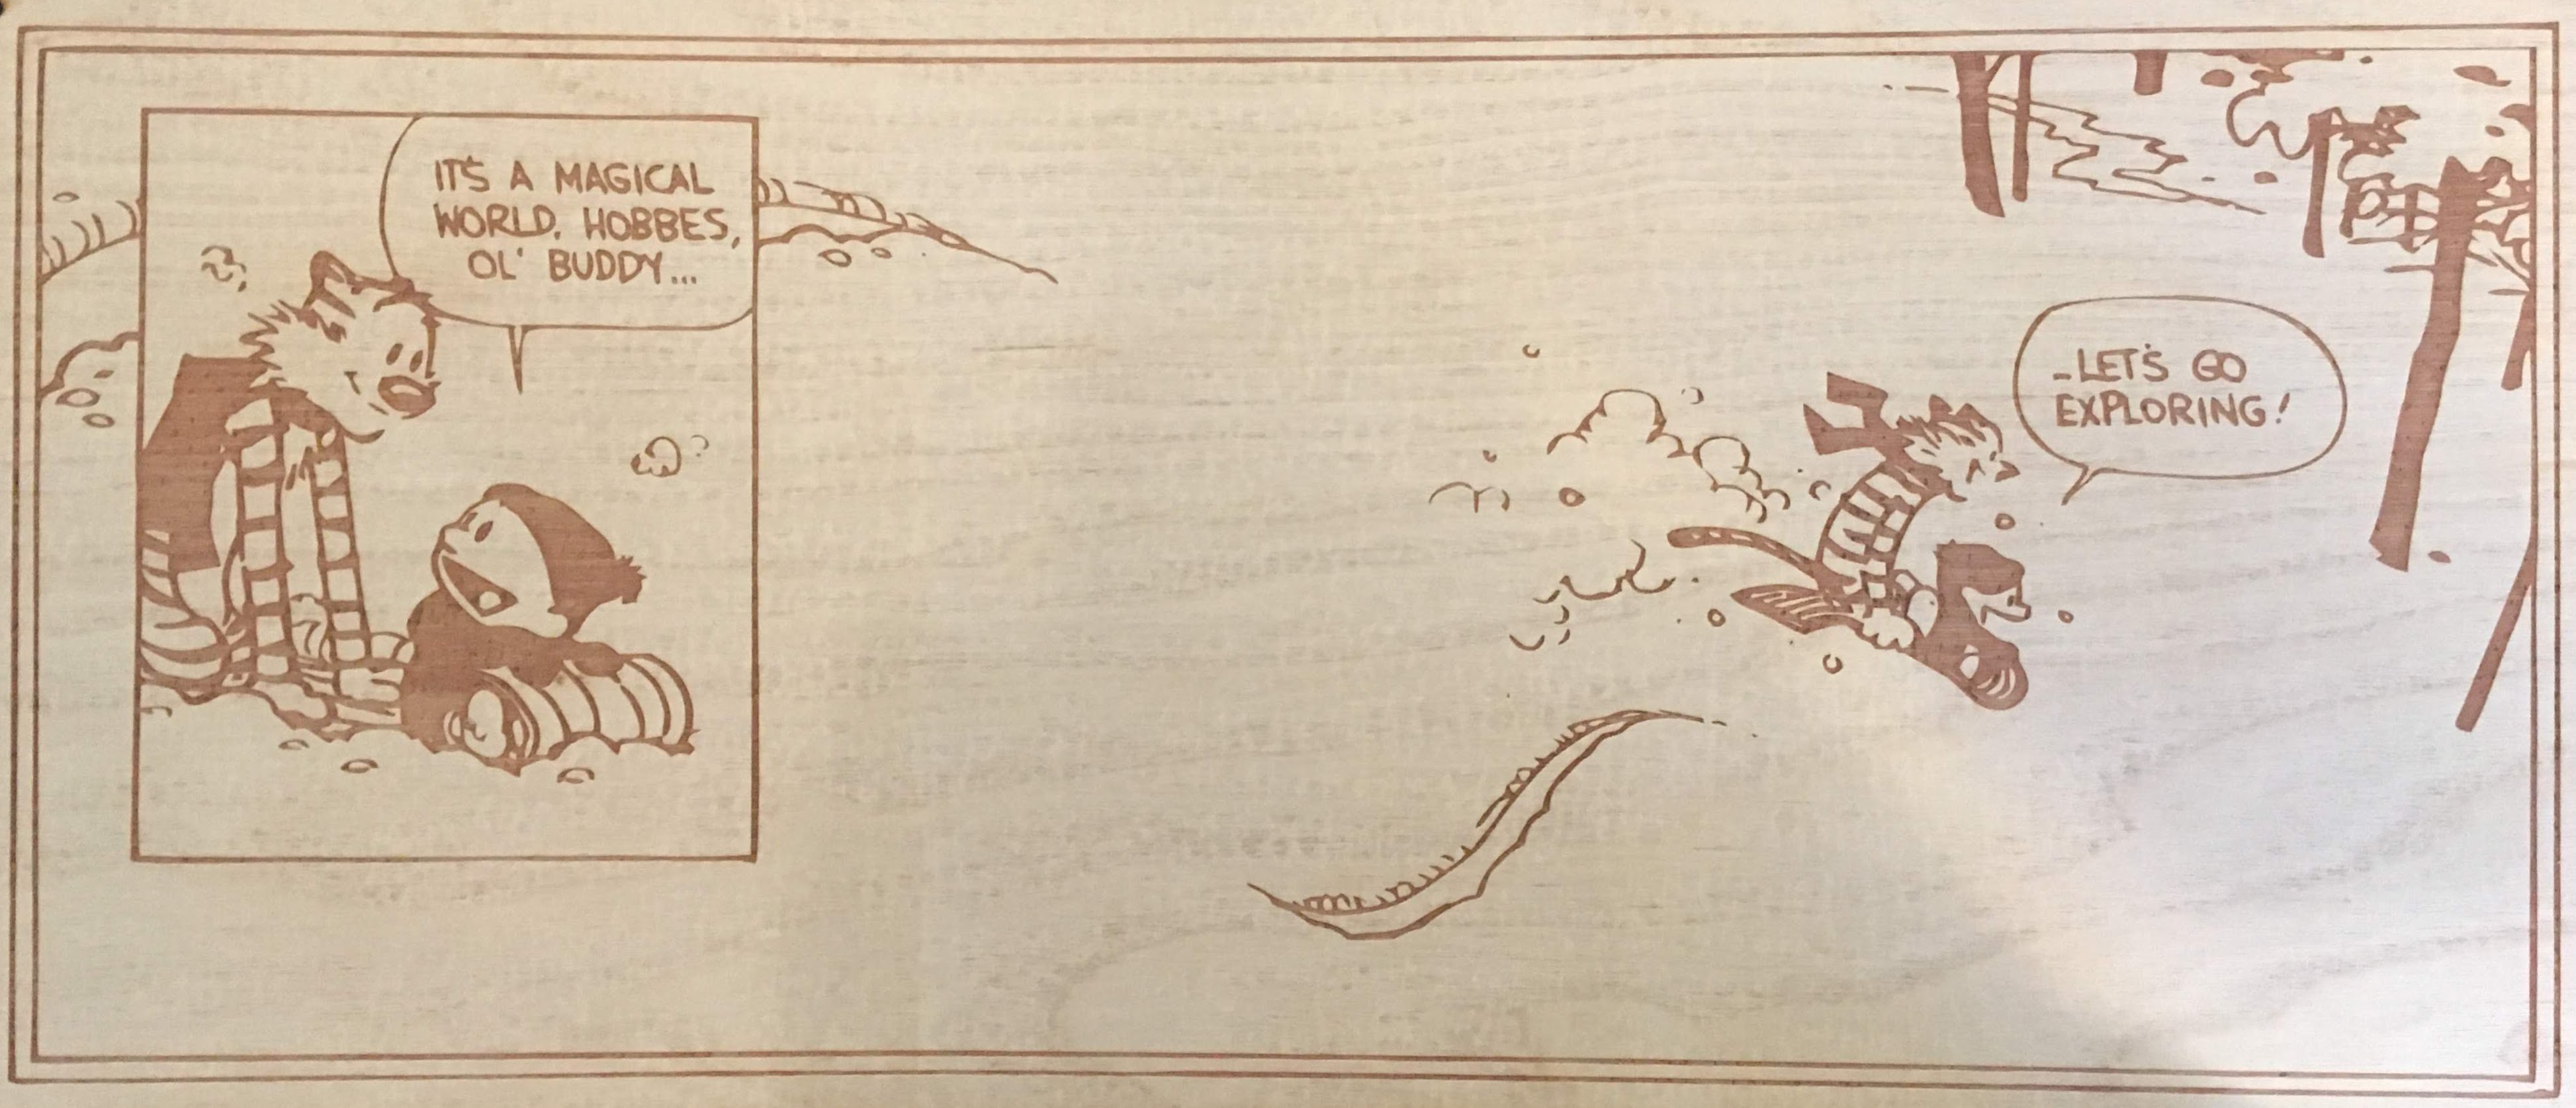 IT'S A MAGICAL
WORLD, HOBBES,
OL' BUDDY...
...LET'S GO
EXPLORING!